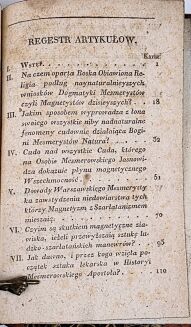 REGESTR ARTYKUŁOW.
Karta:
I. Wstęp. 1
II. Na czem oparta Boska Obiawiona Religia
podług naynaturalnieyszych
wniosków Dogmatyki Mesmerystów
czyli Magnetystów dzisieyszych? 18
III. Jakim sposobem wyprowadza z łona
swoiego wszystkie niby nadnaturalne
fenomeny cudownie działaiąca Bogini
Mesmerystów Natura? 32
IV. Cudo nad wszystkie Cuda, którego
na Osobie Mesmerowskiego Jasnowidza
dokazuie płynu magnetycznego
Wszechmocność 51
V. Dowody Warszawskiego Mesmerystyka
zawstydzenia niedowiarstwa tych
którzy Magnetyzm z Szarlatanizmem
mieszaią
VI. Czyim są skutkiem magnetyczne ziawiska,
ieżeli przewyższaią sztukę ludzko-szarlatańskich
manewrów? 93
VII. Jak dawno, i przez kogo wzięła początek
sztuka lekarska w Historyi
Mesmerowskiego Apostoła? 110